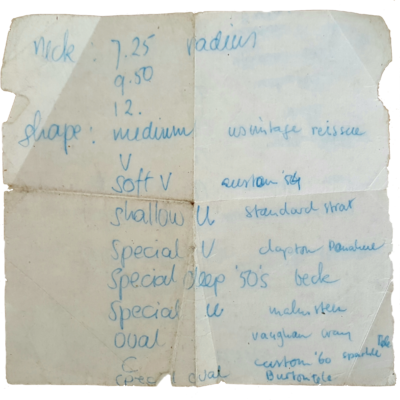 neck : 7.25 radius
9.50
12.
shape : medium us vintage reissue
V
Soft V custom '54
shallow U standard strat
Special V clapton
Special deep '50's beck
Special U malmsteen
Oval vaughan cray
C custom '60 Tele
Special oval Burton tele